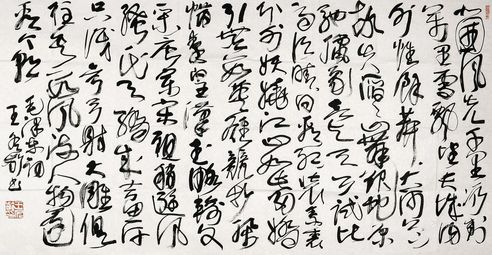 北国风光千里冰封
万里雪飘望长城内
外惟余莽莽大河上下
顿失滔滔山舞银蛇原
驰蜡象欲与天公试比
高须晴日看红装素裹
分外妖娆江山如此多娇
引无数英雄竞折腰
惜秦皇汉武略输文
采唐宗宋祖稍逊风
骚一代天骄成吉思汗
只识弯弓射大雕俱
往矣数风流人物还
看今朝
毛泽东词